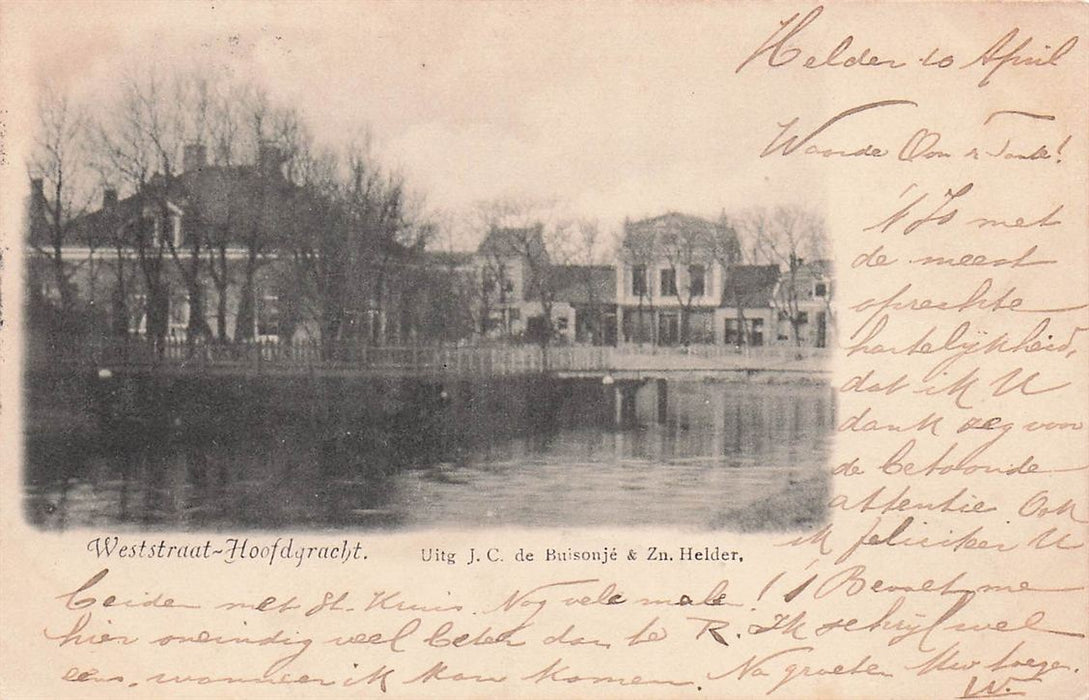 Helder 10 April
Waarde Oom & Tante!
't Is met
de meest
oprechte
hartelijkheid,
dat ik U
dank zeg voor
de betoonde
attentie Ook
ik feliciteer U
Weststraat-Hoofdgracht.
Uitg J. C. de Buisonjé & Zn. Helder.
beiden met St. Kruis. Nog vele malen! 't Bevalt me
hier oneindig veel beter dan te R. Ik schrijf wel
eens, wanneer ik kan komen. Na groeten Uw toegen.
W